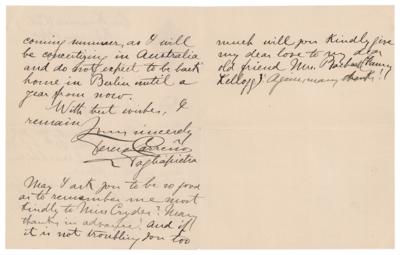 coming summer, as I will
be concertizing in Australia
and do not expect to be back
home in Berlin until a
year from now.
With best wishes, I
remain
Yours sincerely
Teresa Carreño
Tagliapietra
May I ask you to be so good
as to remember me most
kindly to Miss Cryder? Many
thanks in advance! and if
it is not troubling you too
much will you kindly give
my dear love to my dear
old friend Mrs.
Kellogg? Again, many thanks!